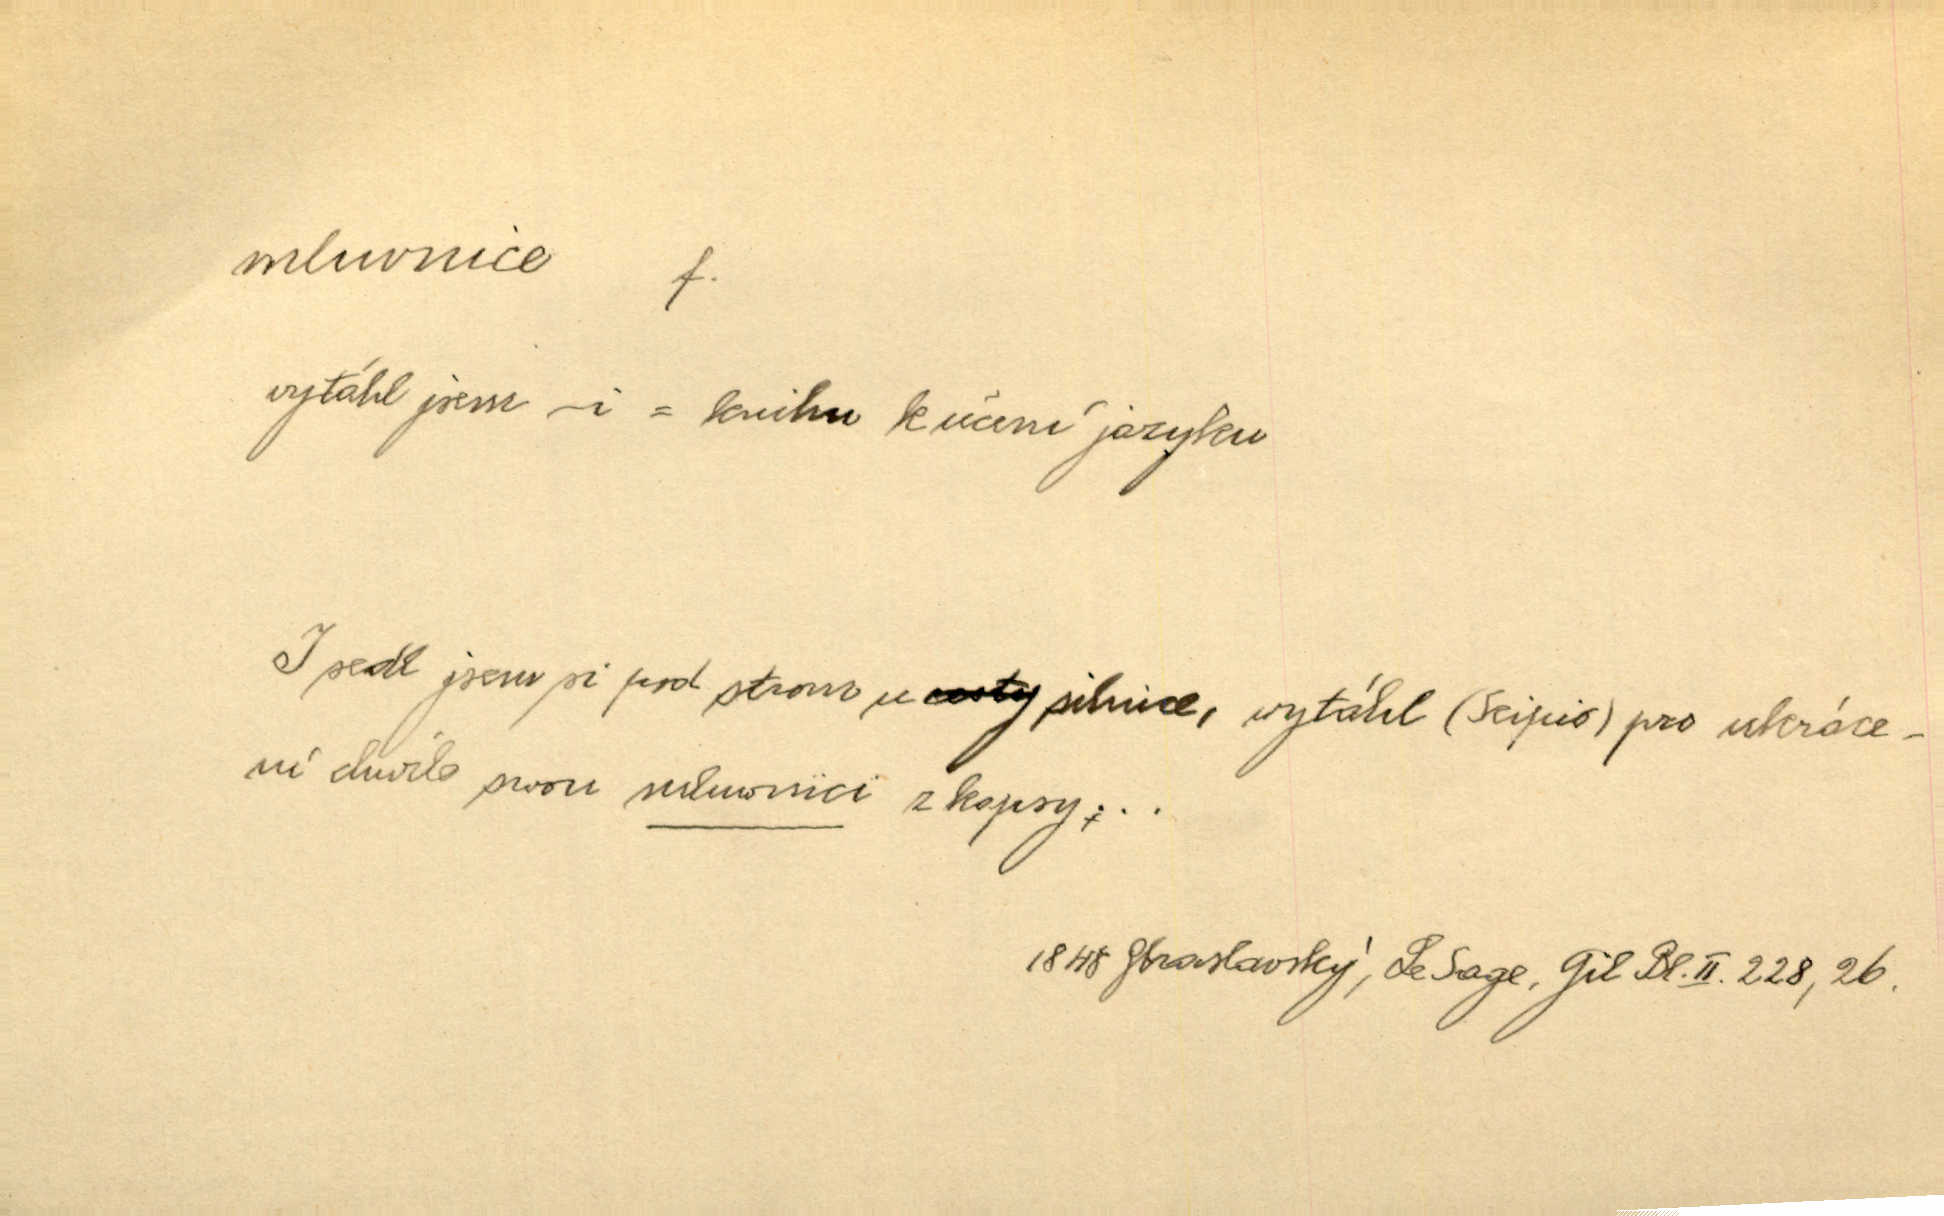 mluvnice f.
vytáhl jsem ~i = knihu k učení jazyku
I sedl jsem si pod strom u cesty silnice, wytáhl (Scipio) pro ukráce-
ní chwíle swou mluwnici z kapsy; . .
1848 Zbraslavský, Le Sage, Gil Bl. II. 228, 26.